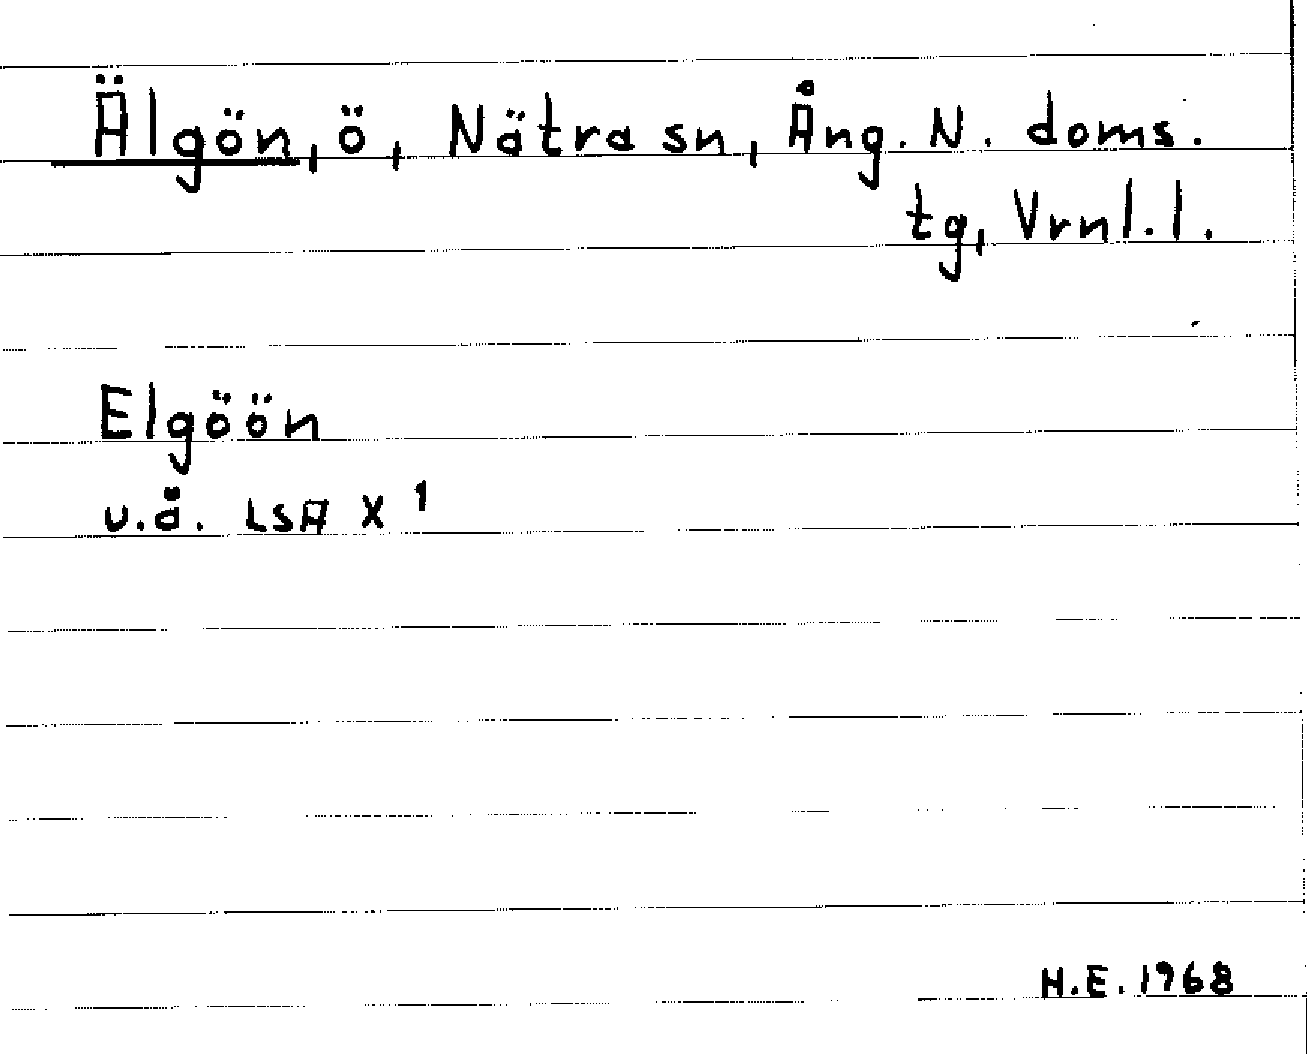 Älgön, ö, Nätra sn, Ång. N. doms.
tg, Vrnl.l.
Elgöön
u.å. LSA X 1
H.E. 1968